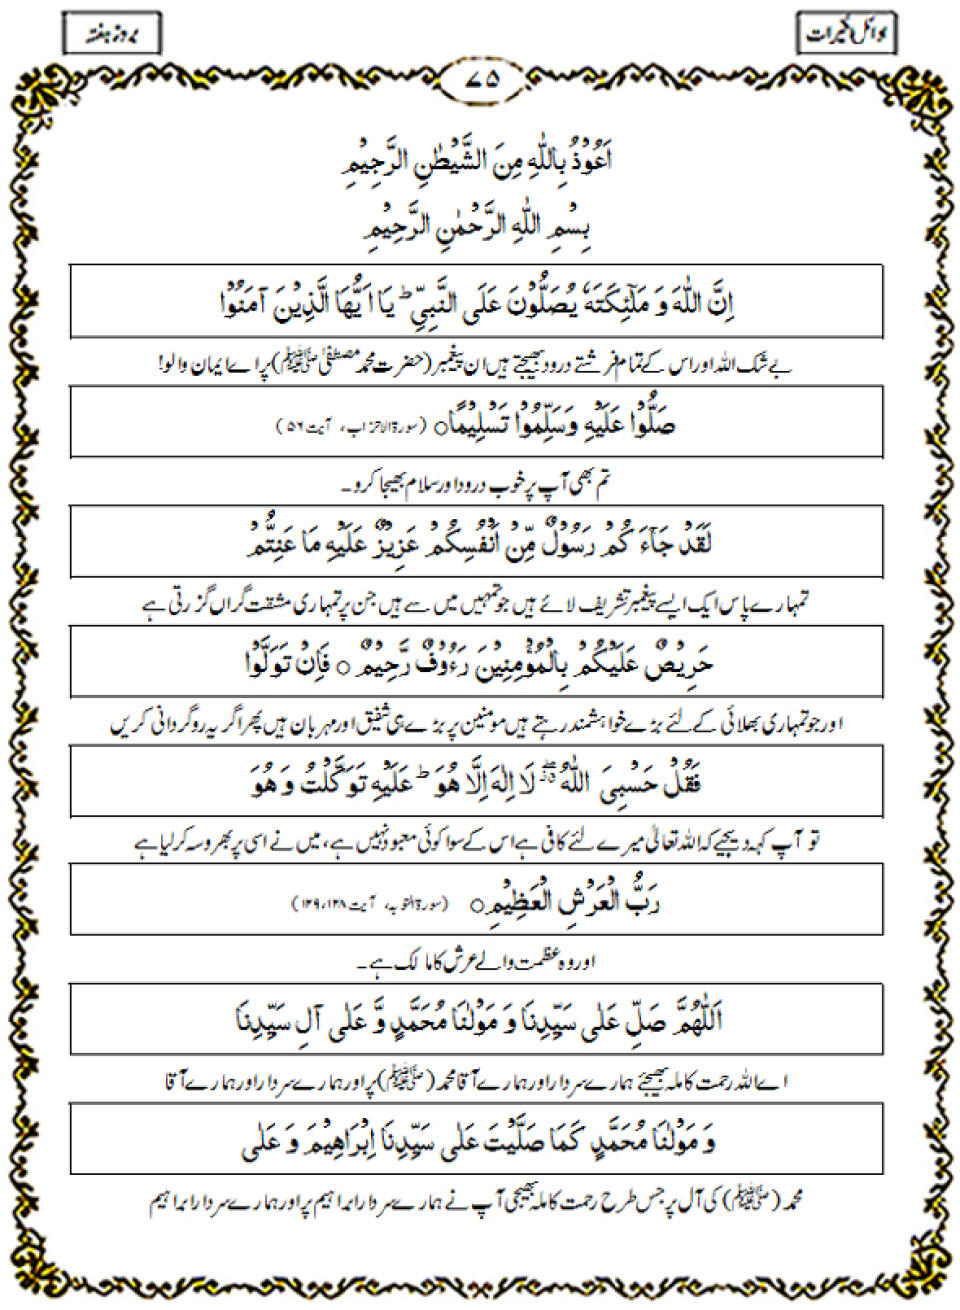 بروز ہفتہ
۷۵
اَعُوْذُ بِاللّٰهِ مِنَ الشَّیْطٰنِ الرَّجِیْمِ
بِسْمِ اللّٰهِ الرَّحْمٰنِ الرَّحِیْمِ
اِنَّ اللّٰهَ وَ مَلٰٓئِکَتَهٗ یُصَلُّوْنَ عَلَی النَّبِیِّ ؕ یَا اَیُّهَا الَّذِیْنَ آمَنُوْا
بے شک اللہ اور اس کے تمام فرشتے درود بھیجتے ہیں ان پیغمبر (حضرت محمد مصطفیٰ ﷺ) پر اے ایمان والو!
صَلُّوْا عَلَیْهِ وَسَلِّمُوْا تَسْلِیْمًا○ (سورۃ الاحزاب، آیت ۵۶)
تم بھی آپ پر خوب درود اور سلام بھیجا کرو۔
لَقَدْ جَآءَ کُمْ رَسُوْلٌ مِّنْ اَنْفُسِکُمْ عَزِیْزٌ عَلَیْهِ مَا عَنِتُّمْ
تمہارے پاس ایک ایسے پیغمبر تشریف لائے ہیں جو تمہیں میں سے ہیں جن پر تمہاری مشقت گراں گزرتی ہے
حَرِیْصٌ عَلَیْکُمْ بِالْمُؤْمِنِیْنَ رَءُوْفٌ رَّحِیْمٌ ○ فَاِنْ تَوَلَّوْا
اور جو تمہاری بھلائی کے لئے بڑے خواہشمند رہتے ہیں مومنین پر بڑے ہی شفیق اور مہربان ہیں پھر اگر یہ روگردانی کریں
فَقُلْ حَسْبِیَ اللّٰهُ لَا اِلٰهَ اِلَّا هُوَ ؕ عَلَیْهِ تَوَکَّلْتُ وَ هُوَ
تو آپ کہہ دیجیے کہ اللہ تعالیٰ میرے لئے کافی ہے اس کے سوا کوئی معبود نہیں ہے، میں نے اسی پر بھروسہ کر لیا ہے
رَبُّ الْعَرْشِ الْعَظِیْمِ○ (سورۃ التوبہ، آیت ۱۲۸،۱۲۹)
اور وہ عظمت والے عرش کا مالک ہے۔
اَللّٰهُمَّ صَلِّ عَلٰی سَیِّدِنَا وَ مَوْلٰنَا مُحَمَّدٍ وَّ عَلٰی آلِ سَیِّدِنَا
اے اللہ رحمت کاملہ بھیجئے ہمارے سردار اور ہمارے آقا محمد (ﷺ) پر اور ہمارے سردار اور ہمارے آقا
وَ مَوْلٰنَا مُحَمَّدٍ کَمَا صَلَّیْتَ عَلٰی سَیِّدِنَا اِبْرَاهِیْمَ وَ عَلٰی
محمد (ﷺ) کی آل پر جس طرح رحمت کاملہ بھیجی آپ نے ہمارے سردار ابراہیم پر اور ہمارے سردار ابراہیم